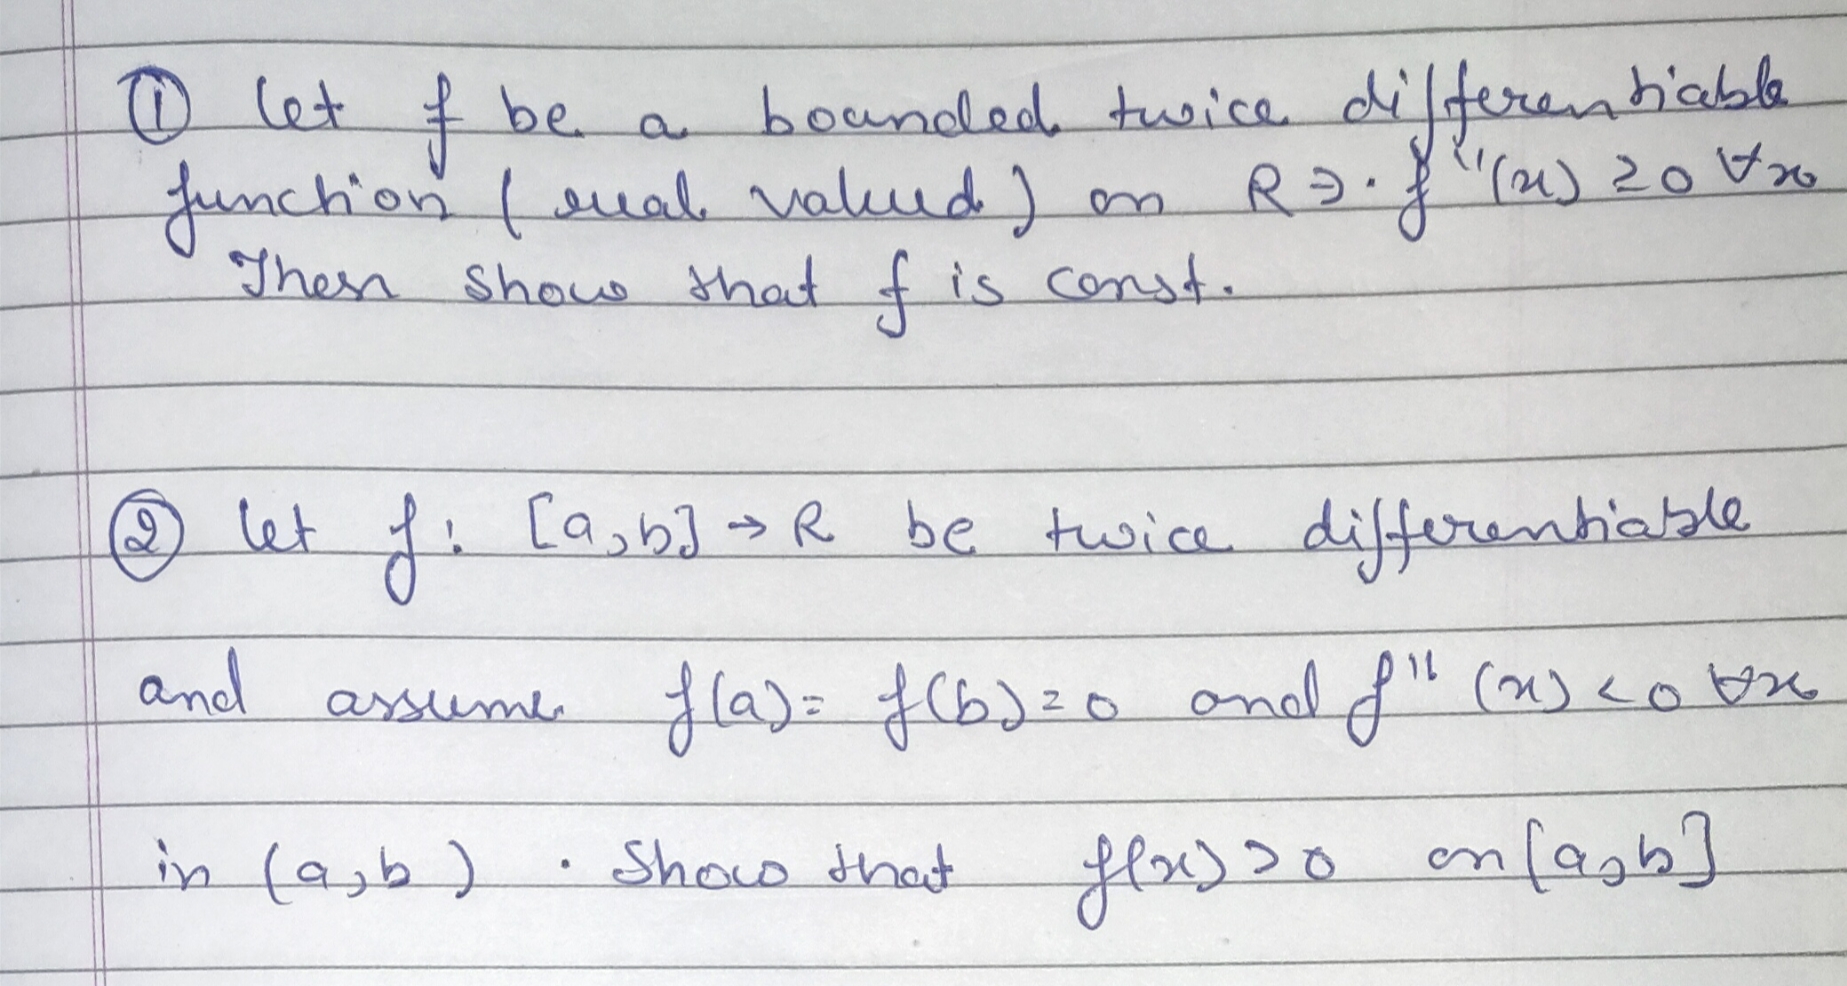 ① let f be a bounded twice differentiable
function (real valued) on R ∋· f''(x) ≥ 0 ∀x
Then show that f is const.
② let f: [a,b] → R be twice differentiable
and assume f(a) = f(b) = 0 and f''(x) < 0 ∀x
in (a,b). Show that f(x) > 0 on [a,b]